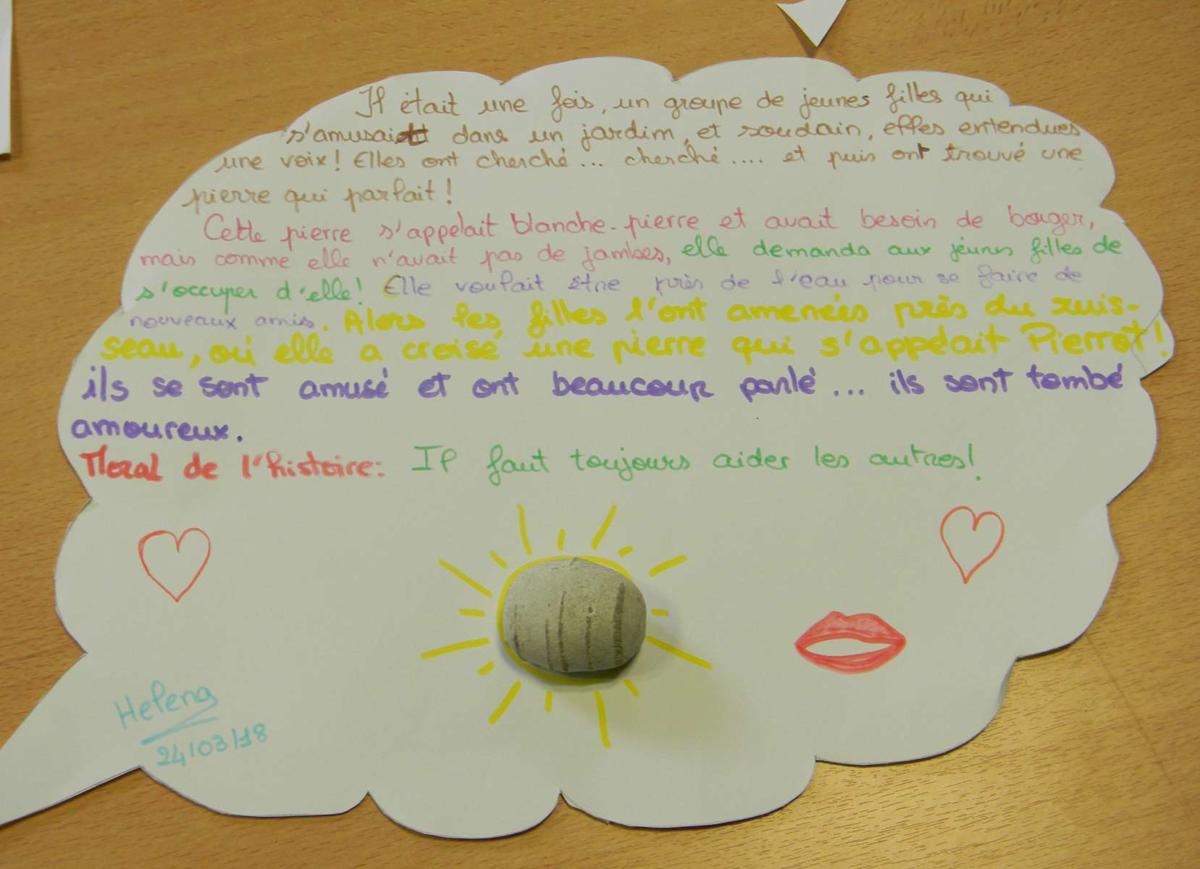 Il était une fois, un groupe de jeunes filles qui
s'amusait dans un jardim, et soudain, elles entendues
une voix! Elles ont cherché... cherché.... et puis ont trouvé une
pierre qui parlait!
Cette pierre s'appelait blanche-pierre et avait besoin de bouger,
mais comme elle n'avait pas de jambes, elle demanda aux jeunes filles de
s'occuper d'elle! Elle voulait être près de l'eau pour se faire de
nouveaux amis. Alors les filles l'ont amenées près du ruis-
seau, où elle a croisé une pierre qui s'appelait Pierrot!
ils se sont amusé et ont beaucoup parlé... ils sont tombé
amoureux.
Moral de l'histoire: Il faut toujours aider les autres!
Helena
24/03/18